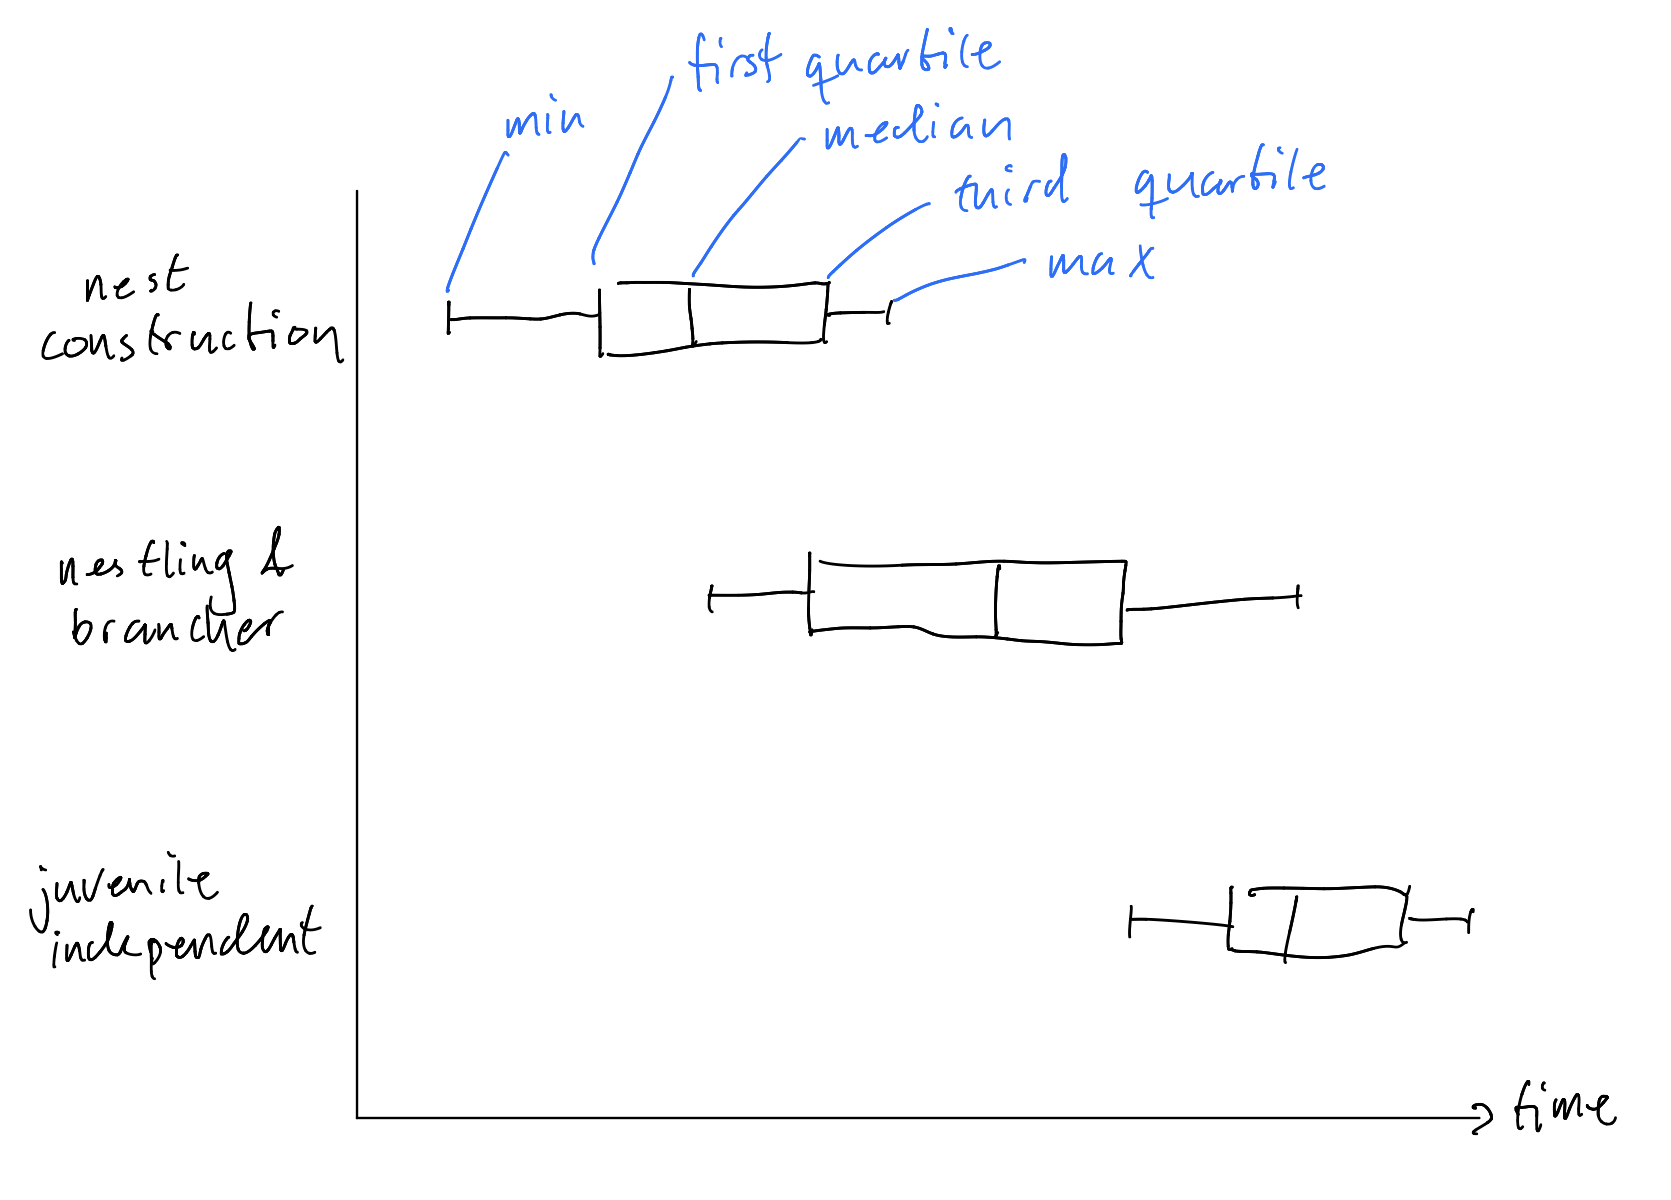 first quartile
min
median
third quartile
max
nest
construction
nestling &
brancher
juvenile
independent
time